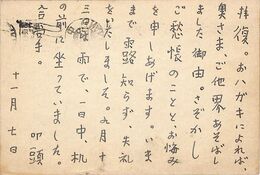 拝復。おハガキによれば、
奥さまご他界あそばし
ました御由。さぞかし
ご愁悵のことと、お悔み
を申しあげます。いま
まで雪路知らず、失礼
をいたしました。九月十
三日 雨で、一日中、机
の前に坐っていました。
合掌。 叩頭
十一月七日